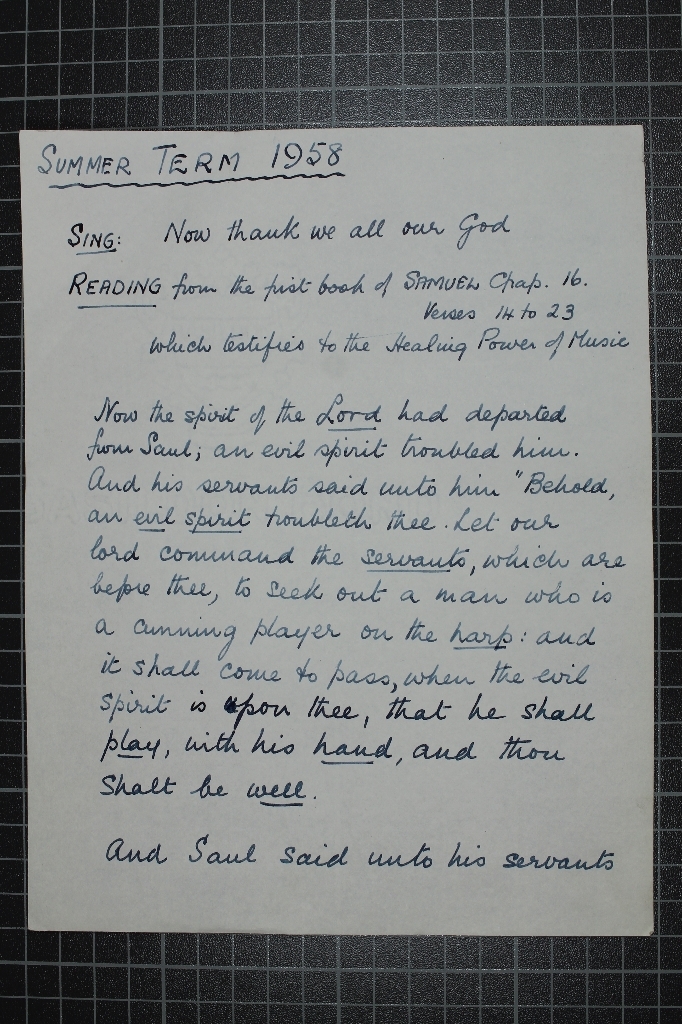 SUMMER TERM 1958
SING: Now thank we all our God
READING from the first book of SAMUEL Chap. 16.
Verses 14 to 23
which testifies to the Healing Power of Music
Now the spirit of the Lord had departed
from Saul; an evil spirit troubled him.
And his servants said unto him "Behold,
an evil spirit troubleth thee. Let our
lord command the servants, which are
before thee, to seek out a man who is
a cunning player on the harp: and
it shall come to pass, when the evil
spirit is upon thee, that he shall
play, with his hand, and thou
shalt be well.
And Saul said unto his servants